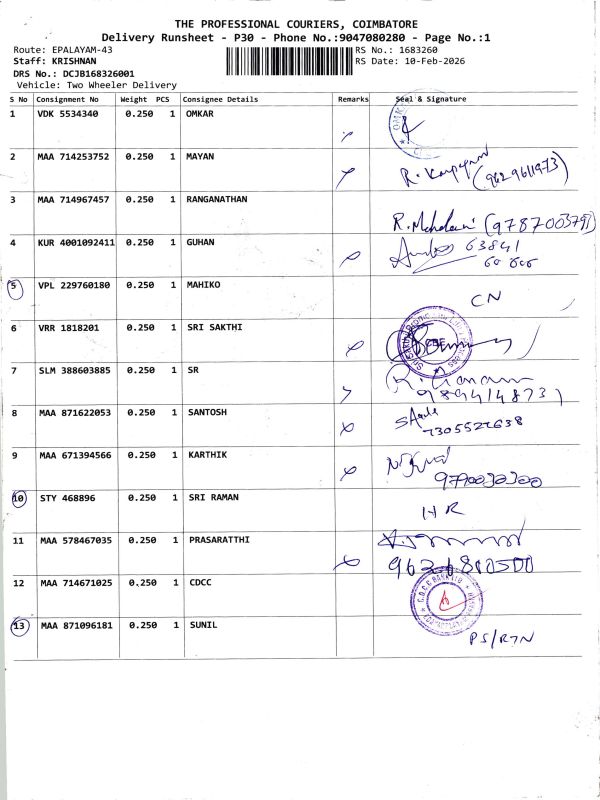 THE PROFESSIONAL COURIERS, COIMBATORE
Delivery Runsheet - P30 - Phone No.:9047080280 - Page No.:1
Route: EPALAYAM-43 RS No.: 1683260
Staff: KRISHNAN RS Date: 10-Feb-2026
DRS No.: DCJB168326001
Vehicle: Two Wheeler Delivery
S No Consignment No Weight PCS Consignee Details Remarks Seal & Signature
1 VDK 5534340 0.250 1 OMKAR
2 MAA 714253752 0.250 1 MAYAN
R. (9629611973)
3 MAA 714967457 0.250 1 RANGANATHAN
R. (9787003791)
4 KUR 4001092411 0.250 1 GUHAN 63841
60 606
5 VPL 229760180 0.250 1 MAHIKO
CN
6 VRR 1818201 0.250 1 SRI SAKTHI
7 SLM 388603885 0.250 1 SR
9894148731
8 MAA 871622053 0.250 1 SANTOSH
7305527638
9 MAA 671394566 0.250 1 KARTHIK
10 STY 468896 0.250 1 SRI RAMAN
HR
11 MAA 578467035 0.250 1 PRASARATTHI
12 MAA 714671025 0.250 1 CDCC
13 MAA 871096181 0.250 1 SUNIL
PS/RTN